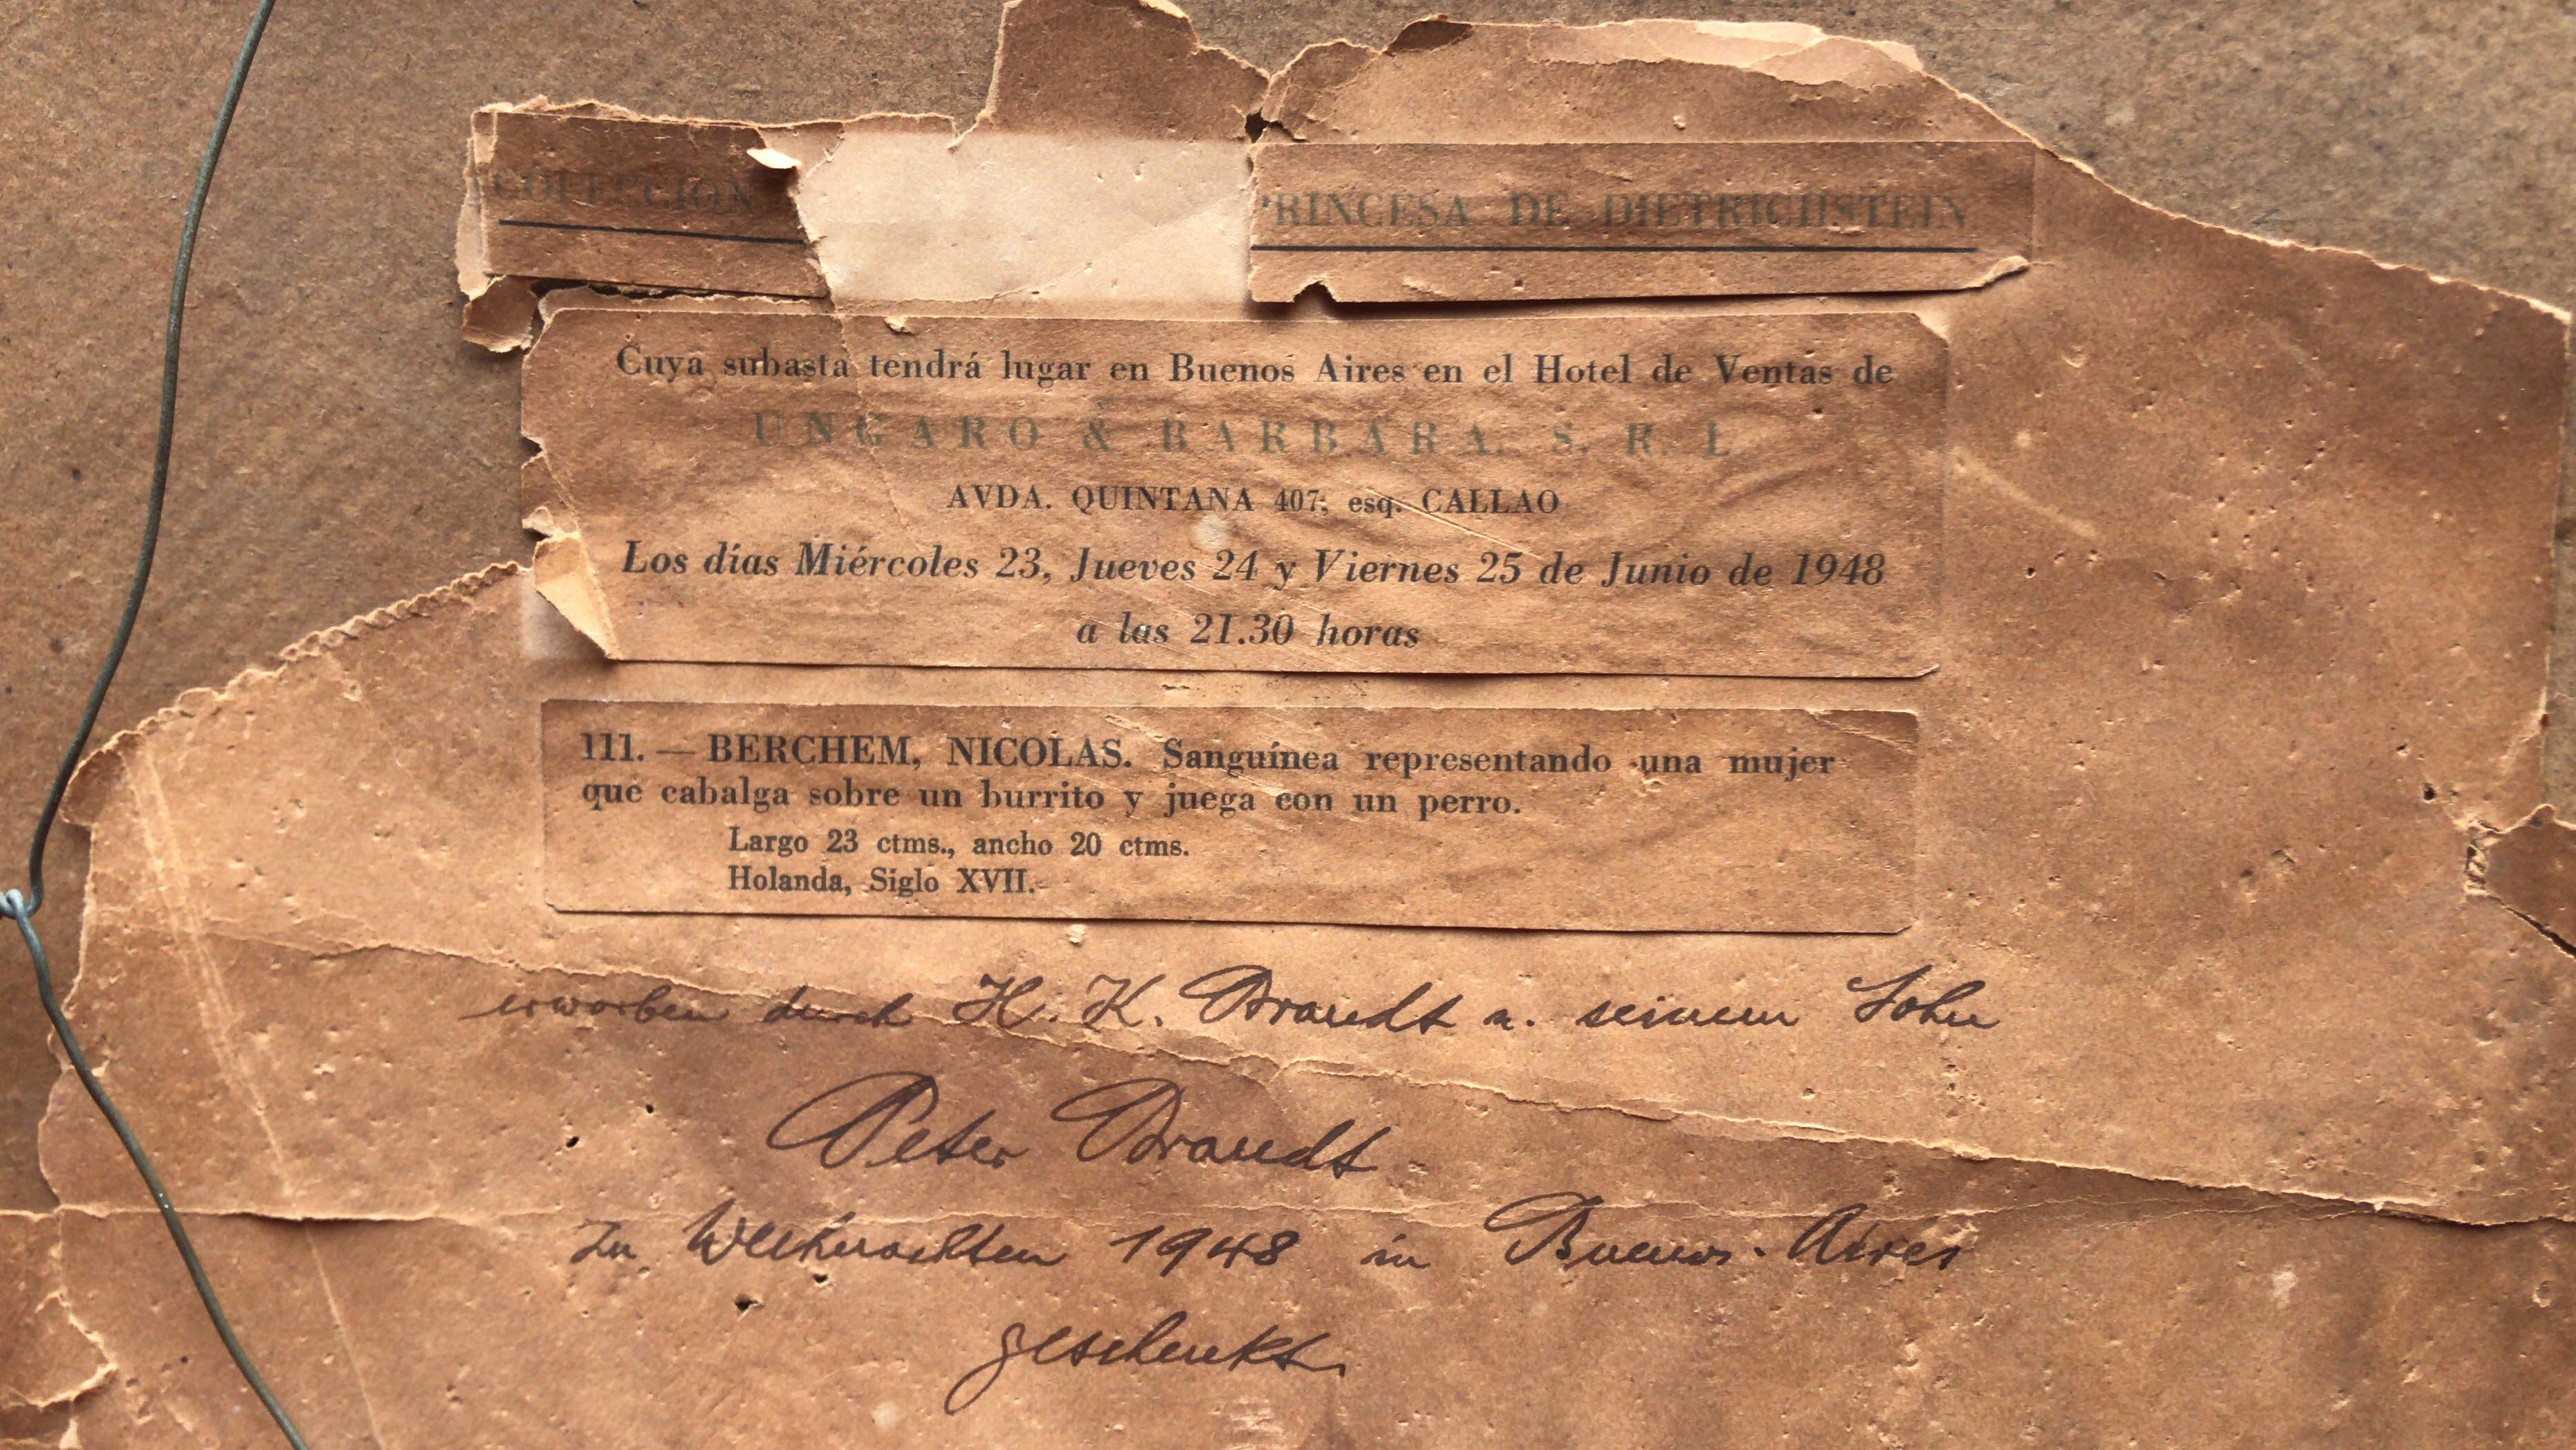 COLECCION PRINCESA DE DIETRICHSTEIN
Cuya subasta tendrá lugar en Buenos Aires en el Hotel de Ventas de
UNGARO & BARBARA. S. R. L.
AVDA. QUINTANA 407, esq. CALLAO
Los días Miércoles 23, Jueves 24 y Viernes 25 de Junio de 1948
a las 21.30 horas
111. — BERCHEM, NICOLAS. Sanguínea representando una mujer
que cabalga sobre un burrito y juega con un perro.
Largo 23 ctms., ancho 20 ctms.
Holanda, Siglo XVII.
erworben durch H. K. Brandt u. seinem Sohn
Peter Brandt
zu Weihnachten 1948 in Buenos-Aires
geschenkt.